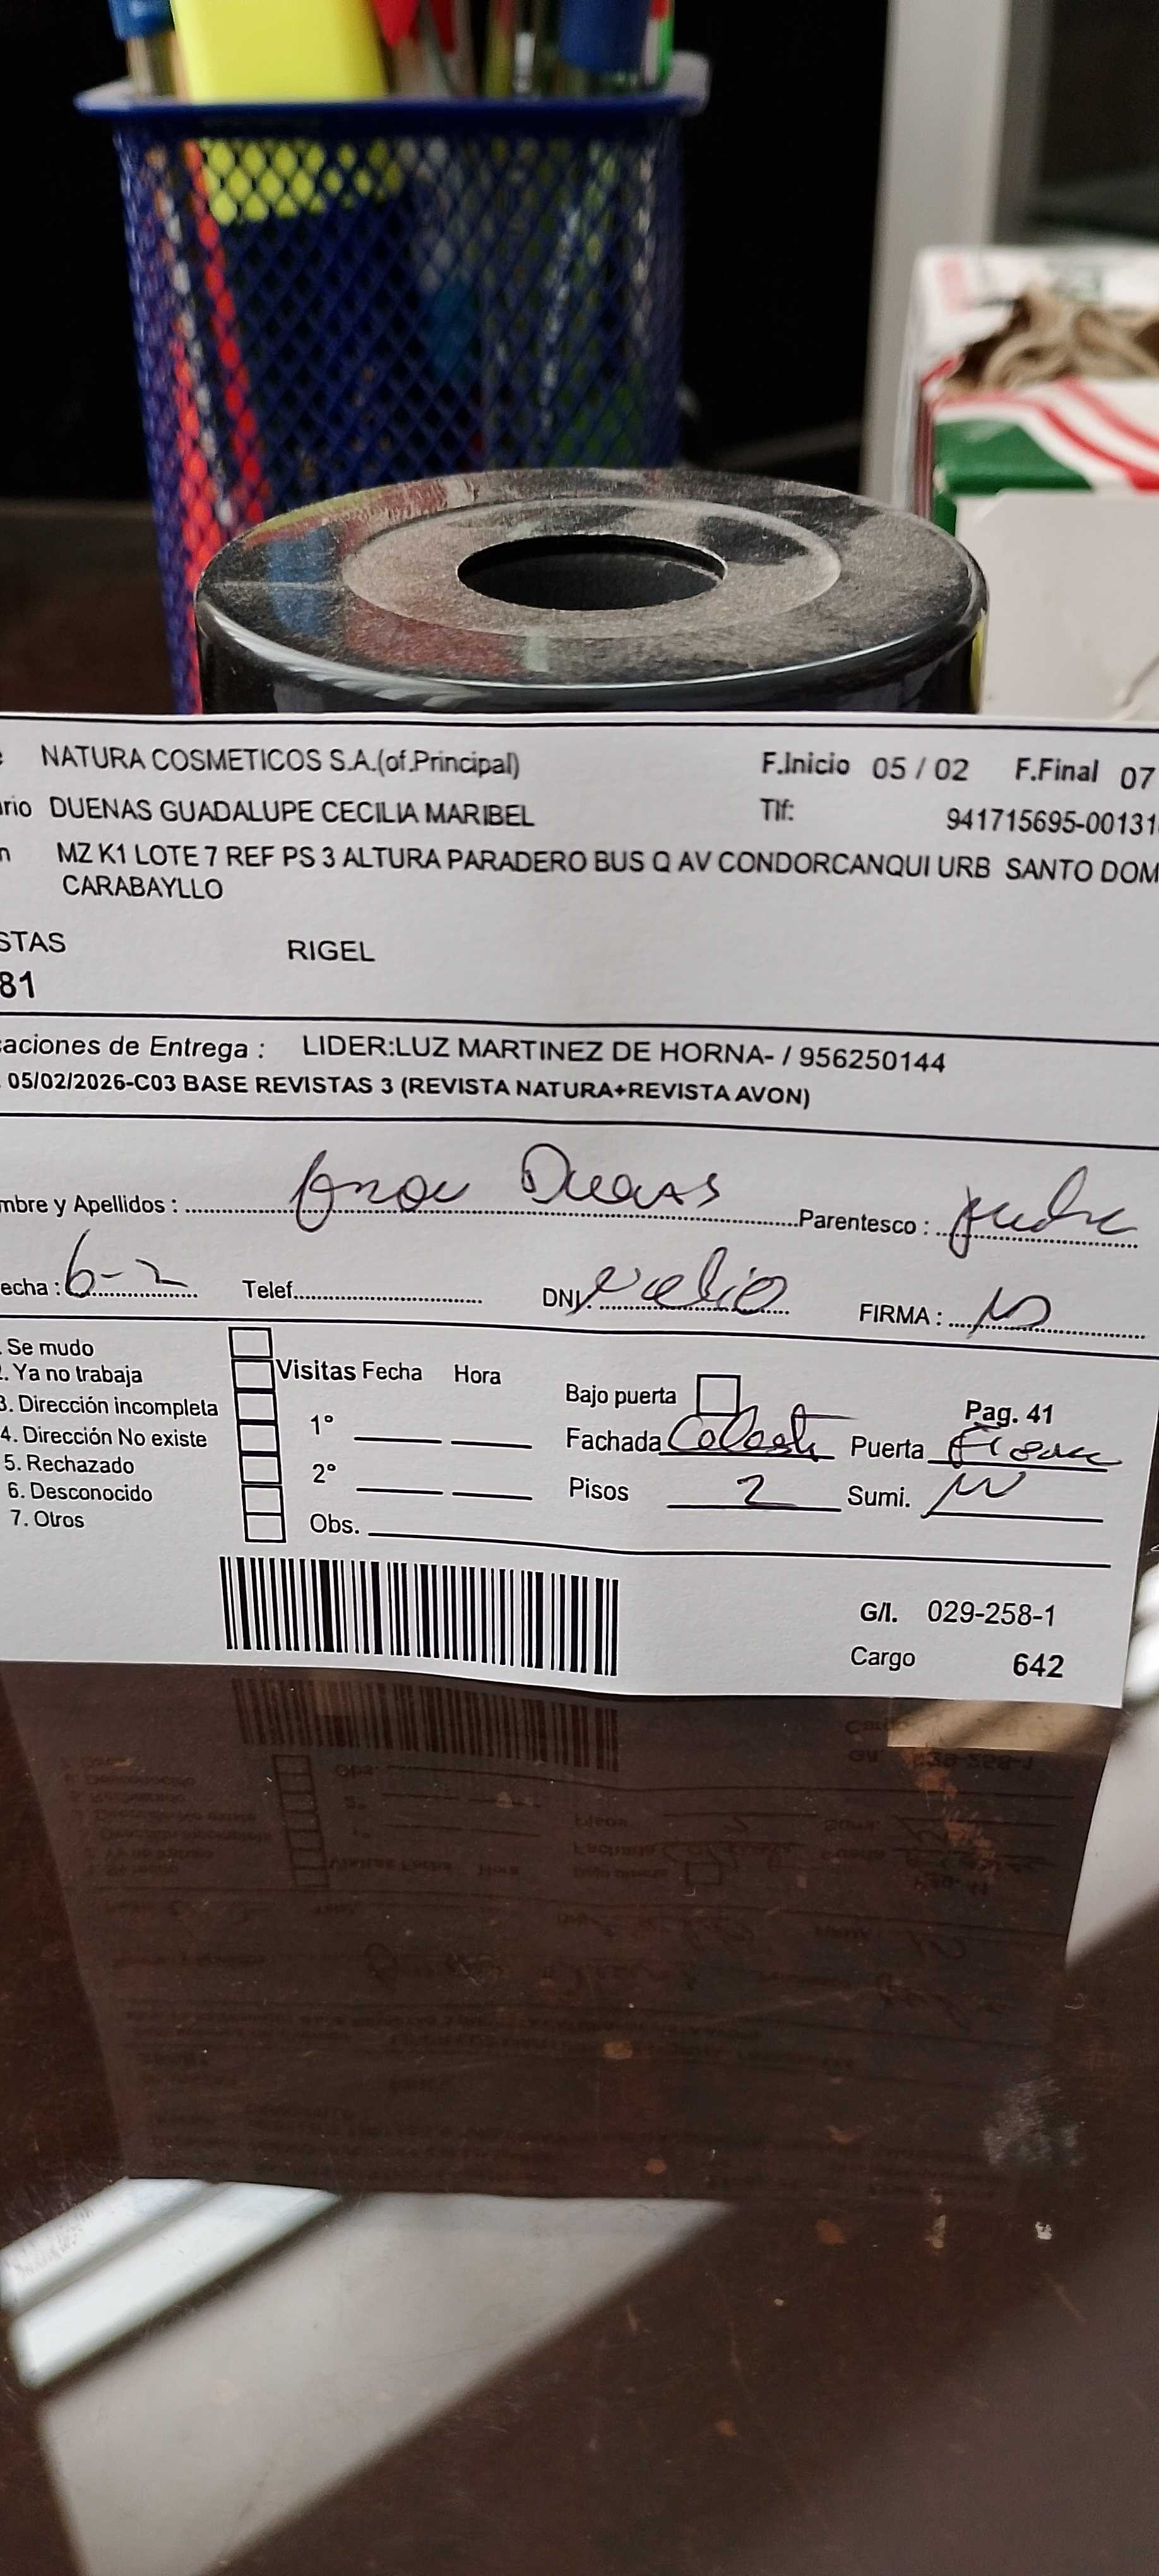 NATURA COSMETICOS S.A.(of.Principal) F.Inicio 05 / 02 F.Final 07
rio DUENAS GUADALUPE CECILIA MARIBEL Tlf: 941715695-00131
n MZ K1 LOTE 7 REF PS 3 ALTURA PARADERO BUS Q AV CONDORCANQUI URB SANTO DOM
CARABAYLLO
STAS RIGEL
81
caciones de Entrega : LIDER:LUZ MARTINEZ DE HORNA- / 956250144
05/02/2026-C03 BASE REVISTAS 3 (REVISTA NATURA+REVISTA AVON)
mbre y Apellidos : Duenas Parentesco :
echa : 6-2 Telef. DNI. FIRMA :
. Se mudo
2. Ya no trabaja Visitas Fecha Hora
3. Dirección incompleta 1° Bajo puerta Pag. 41
4. Dirección No existe Fachada Celeste Puerta
5. Rechazado 2° Pisos 2 Sumi.
6. Desconocido
7. Otros Obs.
G/I. 029-258-1
Cargo 642